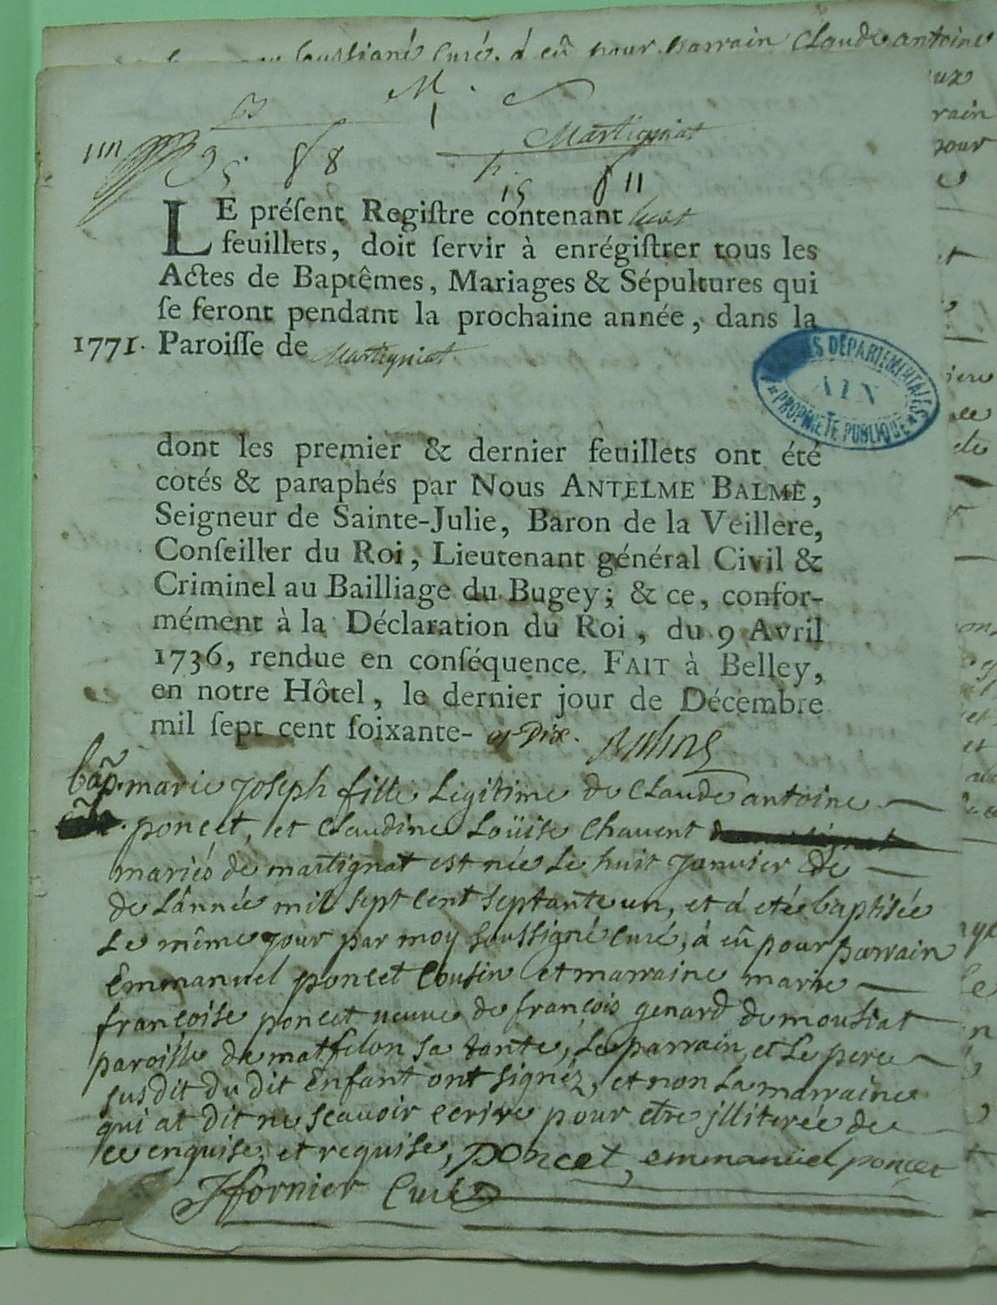 soussigné curé, à eû pour parrain Claude antoine
M.
Martigniat
LE préſent Regiſtre contenant huit
feuillets, doit ſervir à enrégiſtrer tous les
Actes de Baptêmes, Mariages & Sépultures qui
ſe feront pendant la prochaine année, dans la
1771. Paroiſſe de Martigniat.
ARCHIVES DÉPARTEMENTALES
AIN
PROPRIÉTÉ PUBLIQUE
dont les premier & dernier feuillets ont été
cotés & paraphés par Nous ANTELME BALME,
Seigneur de Sainte-Julie, Baron de la Veillere,
Conſeiller du Roi, Lieutenant général Civil &
Criminel au Bailliage du Bugey; & ce, confor-
mément à la Déclaration du Roi, du 9 Avril
1736, rendue en conſéquence. FAIT à Belley,
en notre Hôtel, le dernier jour de Décembre
mil ſept cent ſoixante- et Dix.
bap. marie Joseph fille Legitime de Claude antoine
poncet, et Claudine Loüise Chavent
mariés de martignat est née Le huit Janvier de
de L'année mil sept cent septante un, et à etée baptisée
Le même jour par moy soussigné curé, à eû pour parrain
Emmanuel poncet Cousin et marraine marie
françoise poncet veuve de françois genard de moutiat
paroisse de matfelon sa tante, Le parrain, et Le pere
susdit du dit Enfant ont signéz, et non La marraine
qui at dit ne scavoir ecrire pour etre illiterée de
ce enquise, et requise, poncet, emmanuel poncet
Jfornier Curé